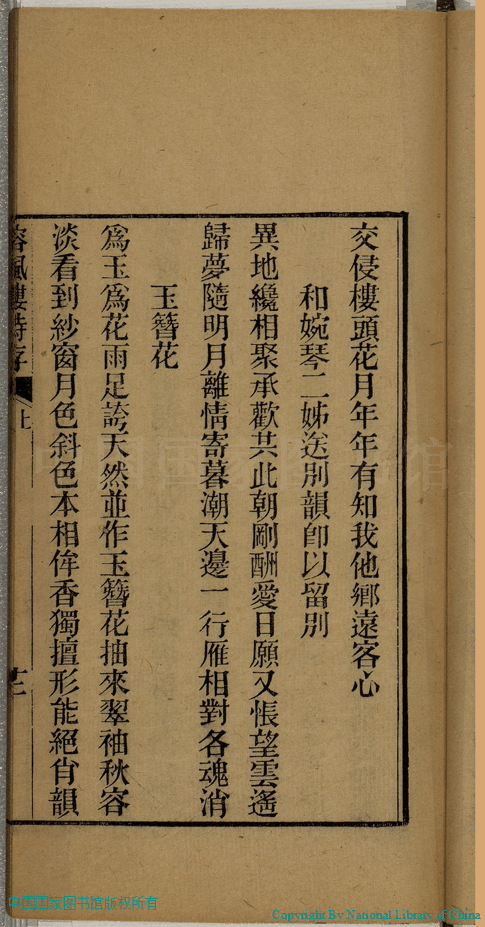 交侵樓頭花月年年有知我他鄉遠客心
和婉琴二姊送別韻卽以留別
異地纔相聚承歡共此朝剛酬愛日願又悵望雲遙
歸夢隨明月離情寄暮潮天邊一行雁相對各魂消
玉簪花
爲玉爲花雨足誇天然並作玉簪花抽來翠袖秋容
淡看到紗窗月色斜色本相侔香獨擅形能絕肖韻
容諷樓詩存
上
十二
中国国家图书馆版权所有
Copyright By National Library of China